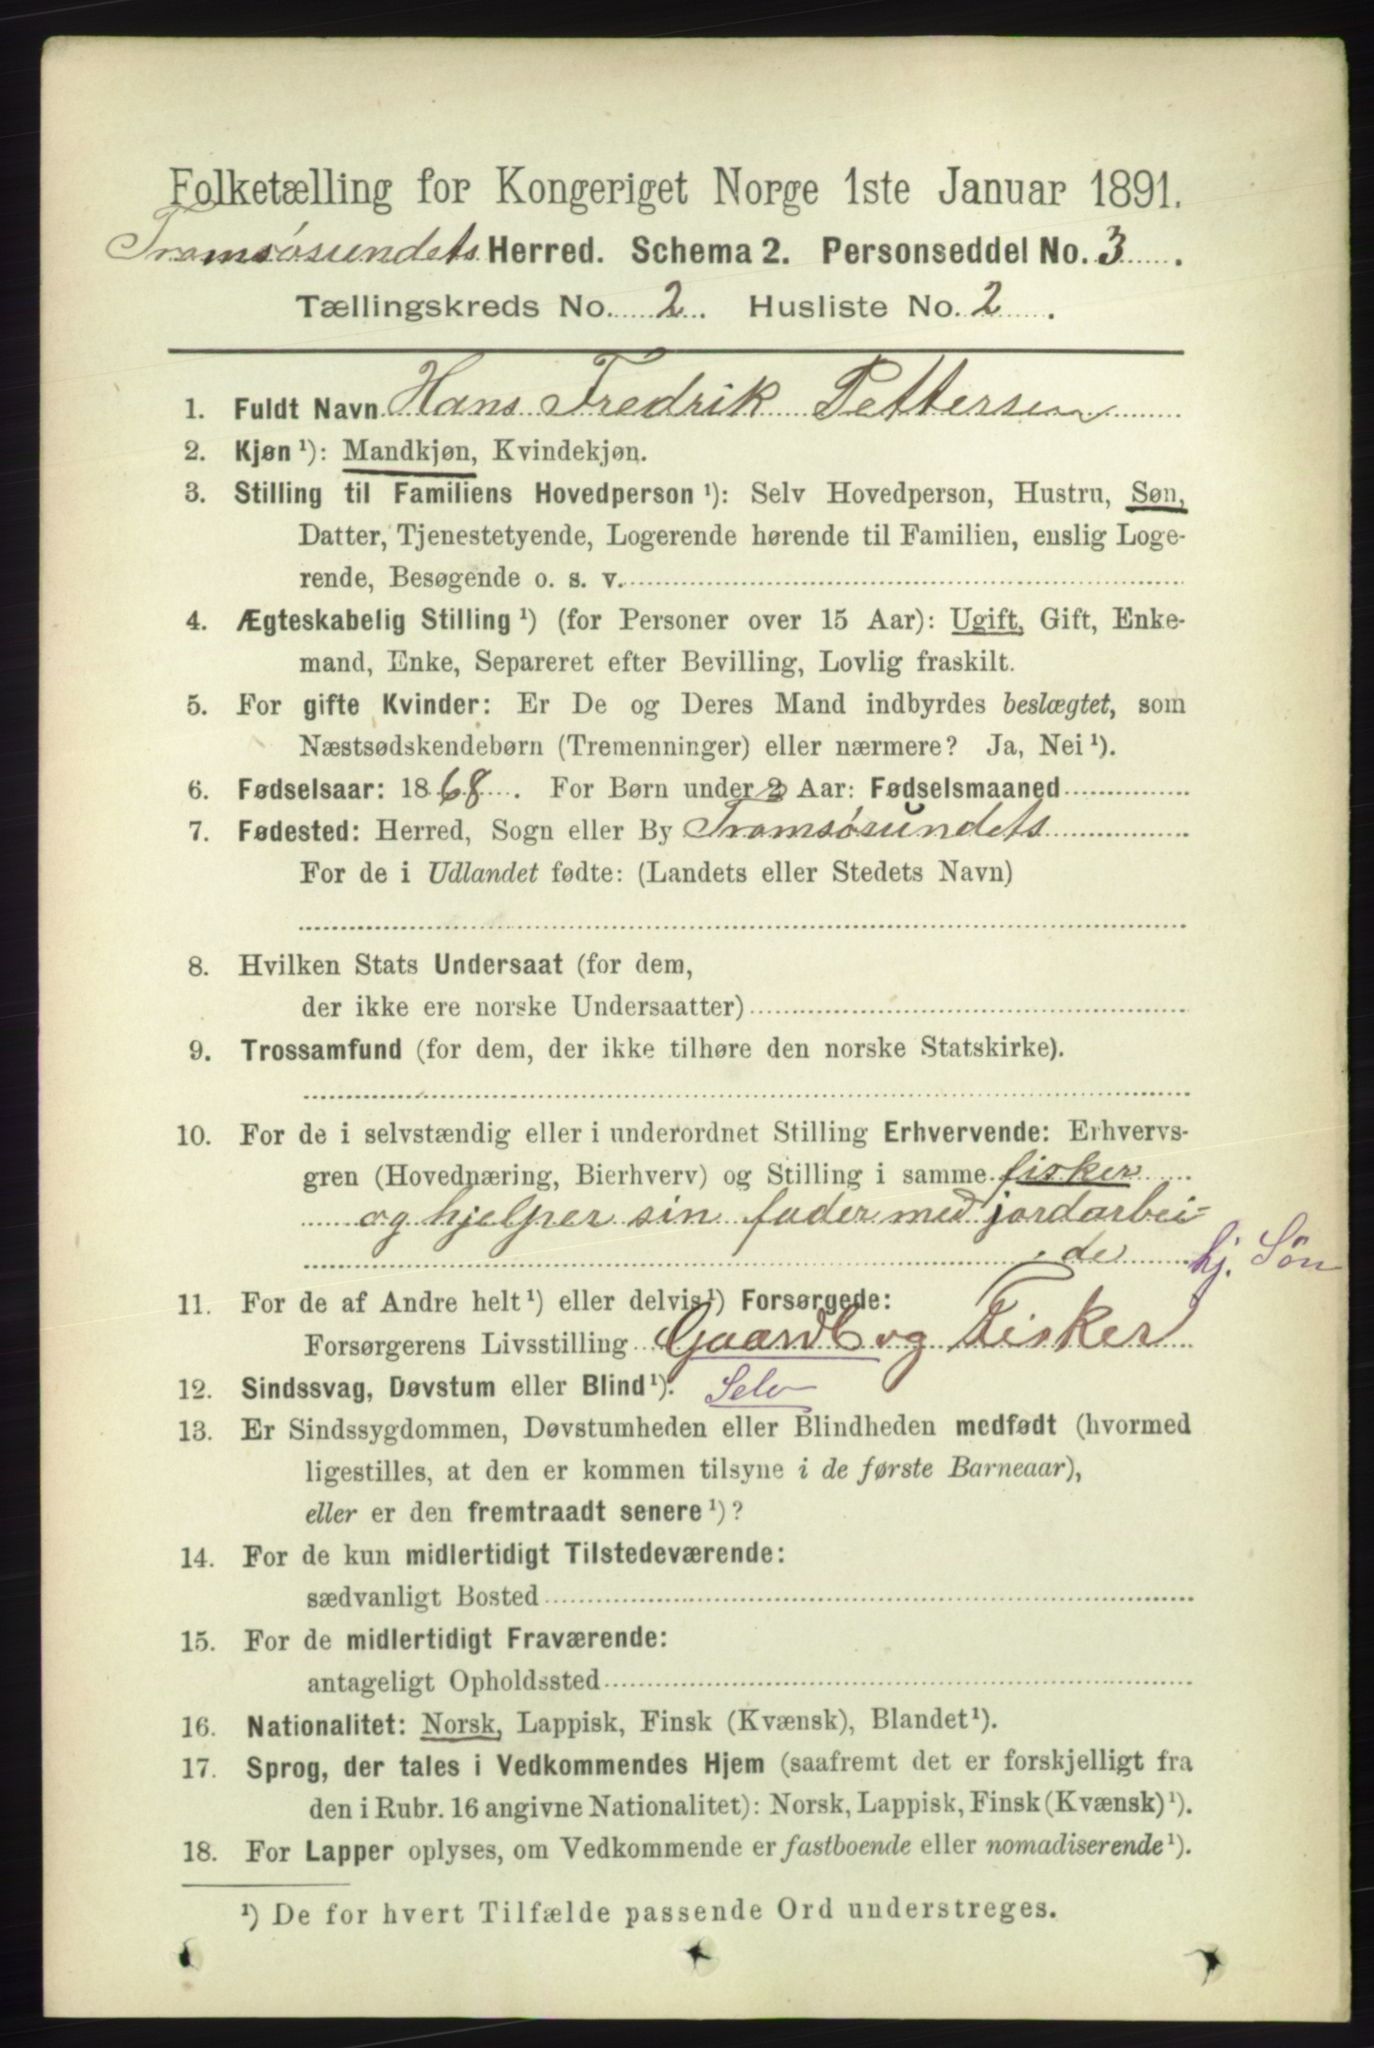 Folketælling for Kongeriget Norge 1ste Januar 1891.
Tromsøsundets Herred. Schema 2. Personseddel No. 3.
Tællingskreds No. 2. Husliste No. 2.
1. Fuldt Navn Hans Fredrik Pettersen
2. Kjøn ¹): Mandkjøn, Kvindekjøn.
3. Stilling til Familiens Hovedperson ¹): Selv Hovedperson, Hustru, Søn,
Datter, Tjenestetyende, Logerende hørende til Familien, enslig Loge-
rende, Besøgende o. s. v.
4. Ægteskabelig Stilling ¹) (for Personer over 15 Aar): Ugift, Gift, Enke-
mand, Enke, Separeret efter Bevilling, Lovlig fraskilt.
5. For gifte Kvinder: Er De og Deres Mand indbyrdes beslægtet, som
Næstsødskendebørn (Tremenninger) eller nærmere? Ja, Nei ¹).
6. Fødselsaar: 1868. For Børn under 2 Aar: Fødselsmaaned
7. Fødested: Herred, Sogn eller By Tromsøsundets
For de i Udlandet fødte: (Landets eller Stedets Navn)
8. Hvilken Stats Undersaat (for dem,
der ikke ere norske Undersaatter)
9. Trossamfund (for dem, der ikke tilhøre den norske Statskirke).
10. For de i selvstændig eller i underordnet Stilling Erhvervende: Erhvervs-
gren (Hovednæring, Bierhverv) og Stilling i samme fisker
og hjelper sin fader med jordarbei=
de hj. Søn
11. For de af Andre helt ¹) eller delvis ¹) Forsørgede:
Forsørgerens Livsstilling Gaardb og Fisker
12. Sindssvag, Døvstum eller Blind ¹). Selv
13. Er Sindssygdommen, Døvstumheden eller Blindheden medfødt (hvormed
ligestilles, at den er kommen tilsyne i de første Barneaar),
eller er den fremtraadt senere ¹)?
14. For de kun midlertidigt Tilstedeværende:
sædvanligt Bosted
15. For de midlertidigt Fraværende:
antageligt Opholdssted
16. Nationalitet: Norsk, Lappisk, Finsk (Kvænsk), Blandet ¹).
17. Sprog, der tales i Vedkommendes Hjem (saafremt det er forskjelligt fra
den i Rubr. 16 angivne Nationalitet): Norsk, Lappisk, Finsk (Kvænsk) ¹).
18. For Lapper oplyses, om Vedkommende er fastboende eller nomadiserende ¹).
¹) De for hvert Tilfælde passende Ord understreges.